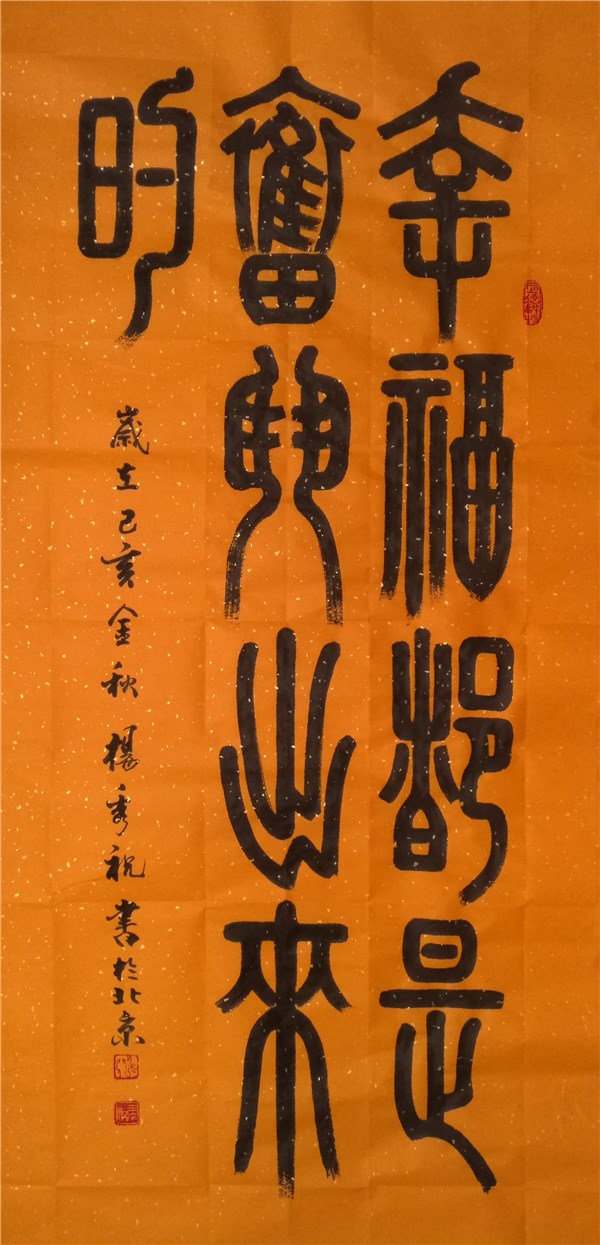 幸福都是
奮鬥出來
的
歲在己亥金秋楊秀祝書於北京